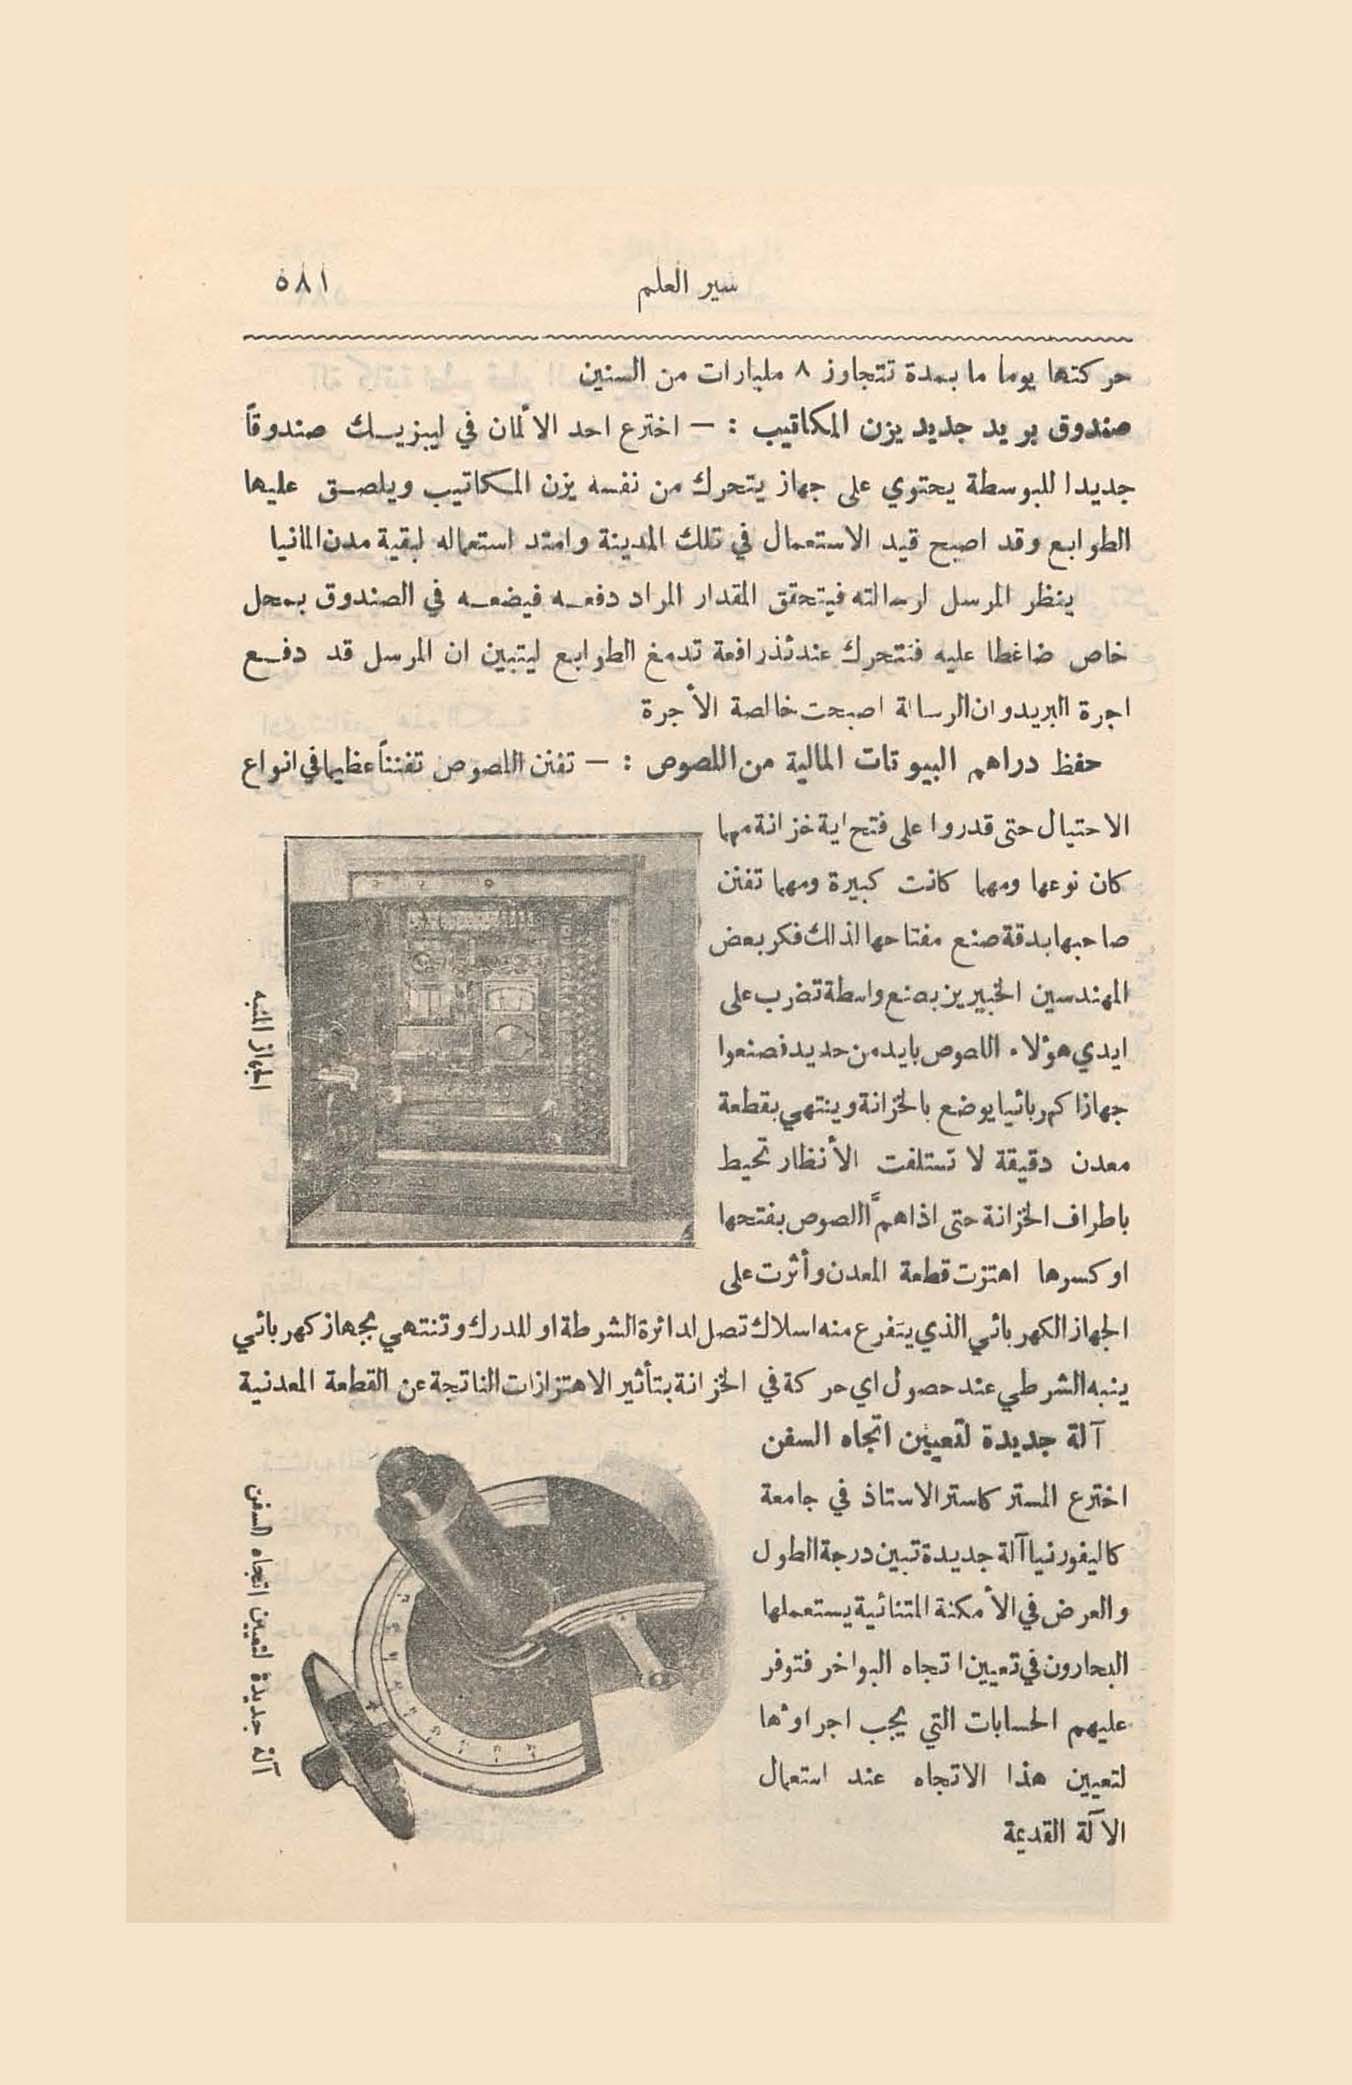 سير العلم ٥٨١
حركتها يوما ما بمدة تتجاوز ٨ مليارات من السنين
صندوق بريد جديد يزن المكاتيب : — اخترع احد الألمان في ليبزيك صندوقاً
جديدا للبوسطة يحتوي على جهاز يتحرك من نفسه يزن المكاتيب ويلصق عليها
الطوابع وقد اصبح قيد الاستعمال في تلك المدينة وامتد استعماله لبقية مدن المانيا
ينظر المرسل لرسالته فيتحقق المقدار المراد دفعه فيضعه في الصندوق بمحل
خاص ضاغطا عليه فتتحرك عندئذ رافعة تدمغ الطوابع ليتبين ان المرسل قد دفع
اجرة البريد وان الرسالة اصبحت خالصة الأجرة
حفظ دراهم البيوتات المالية من اللصوص : — تفنن اللصوص تفنناً عظيما في انواع
الاحتيال حتى قدروا على فتح اية خزانة مهما
كان نوعها ومهما كانت كبيرة ومهما تفنن
صاحبها بدقة صنع مفتاحها لذلك فكر بعض
المهندسين الخبيرين بصنع واسطة تضرب على
ايدي هؤلاء اللصوص بايد من حديد فصنعوا
جهازا كهربائيا يوضع بالخزانة وينتهي بقطعة
معدن دقيقة لا تستلفت الأنظار تحيط
باطراف الخزانة حتى اذا همَّ اللصوص بفتحها
او كسرها اهتزت قطعة المعدن وأثرت على
الجهاز الكهربائي الذي يتفرع منه اسلاك تصل لدائرة الشرطة او للدرك وتنتهي بجهاز كهربائي
ينبه الشرطي عند حصول اي حركة في الخزانة بتأثير الاهتزازات الناتجة عن القطعة المعدنية
الجهاز المنبه
آلة جديدة لتعيين اتجاه السفن
اخترع المستر كاستر الاستاذ في جامعة
كاليفورنيا آلة جديدة تبين درجة الطول
والعرض في الأمكنة المتنائية يستعملها
البحارون في تعيين اتجاه البواخر فتوفر
عليهم الحسابات التي يجب اجراؤها
لتعيين هذا الاتجاه عند استعمال
الآلة القديمة
آلة جديدة لتعيين اتجاه السفن